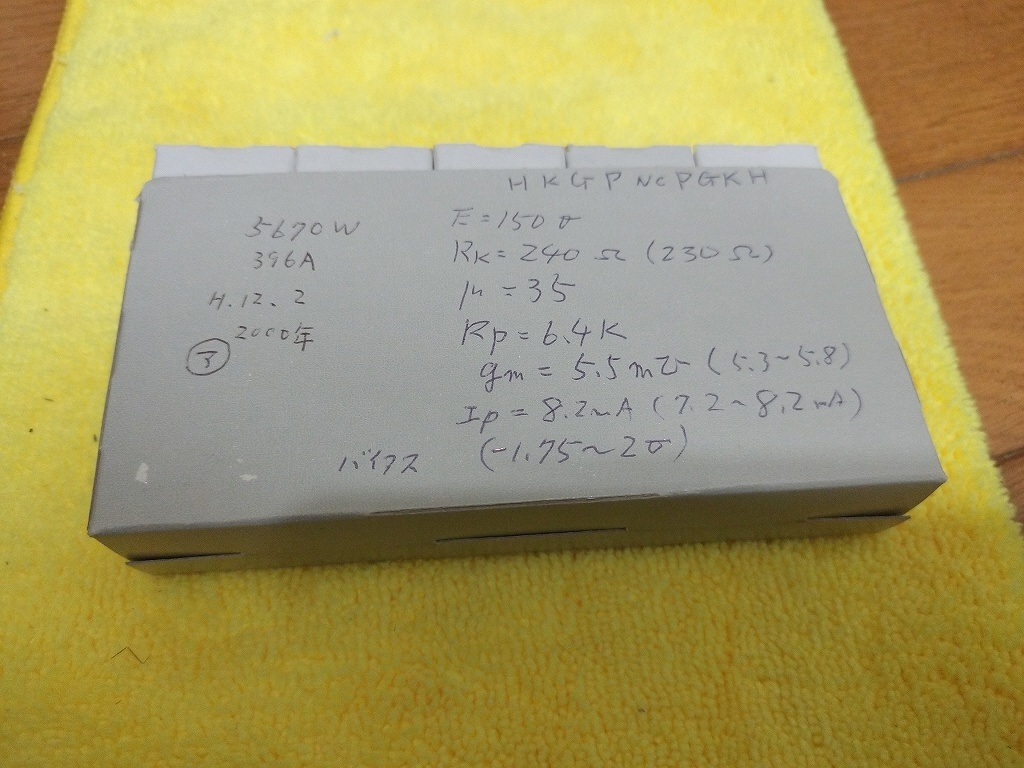 H K G P NC P G K H
5670W
396A
H.12.2
2000年
E=150v
RK=240Ω (230Ω)
μ=35
Rp=6.4K
gm=5.5m℧ (5.3~5.8)
Ip=8.2mA (7.2~8.2mA)
バイアス (-1.75~2v)